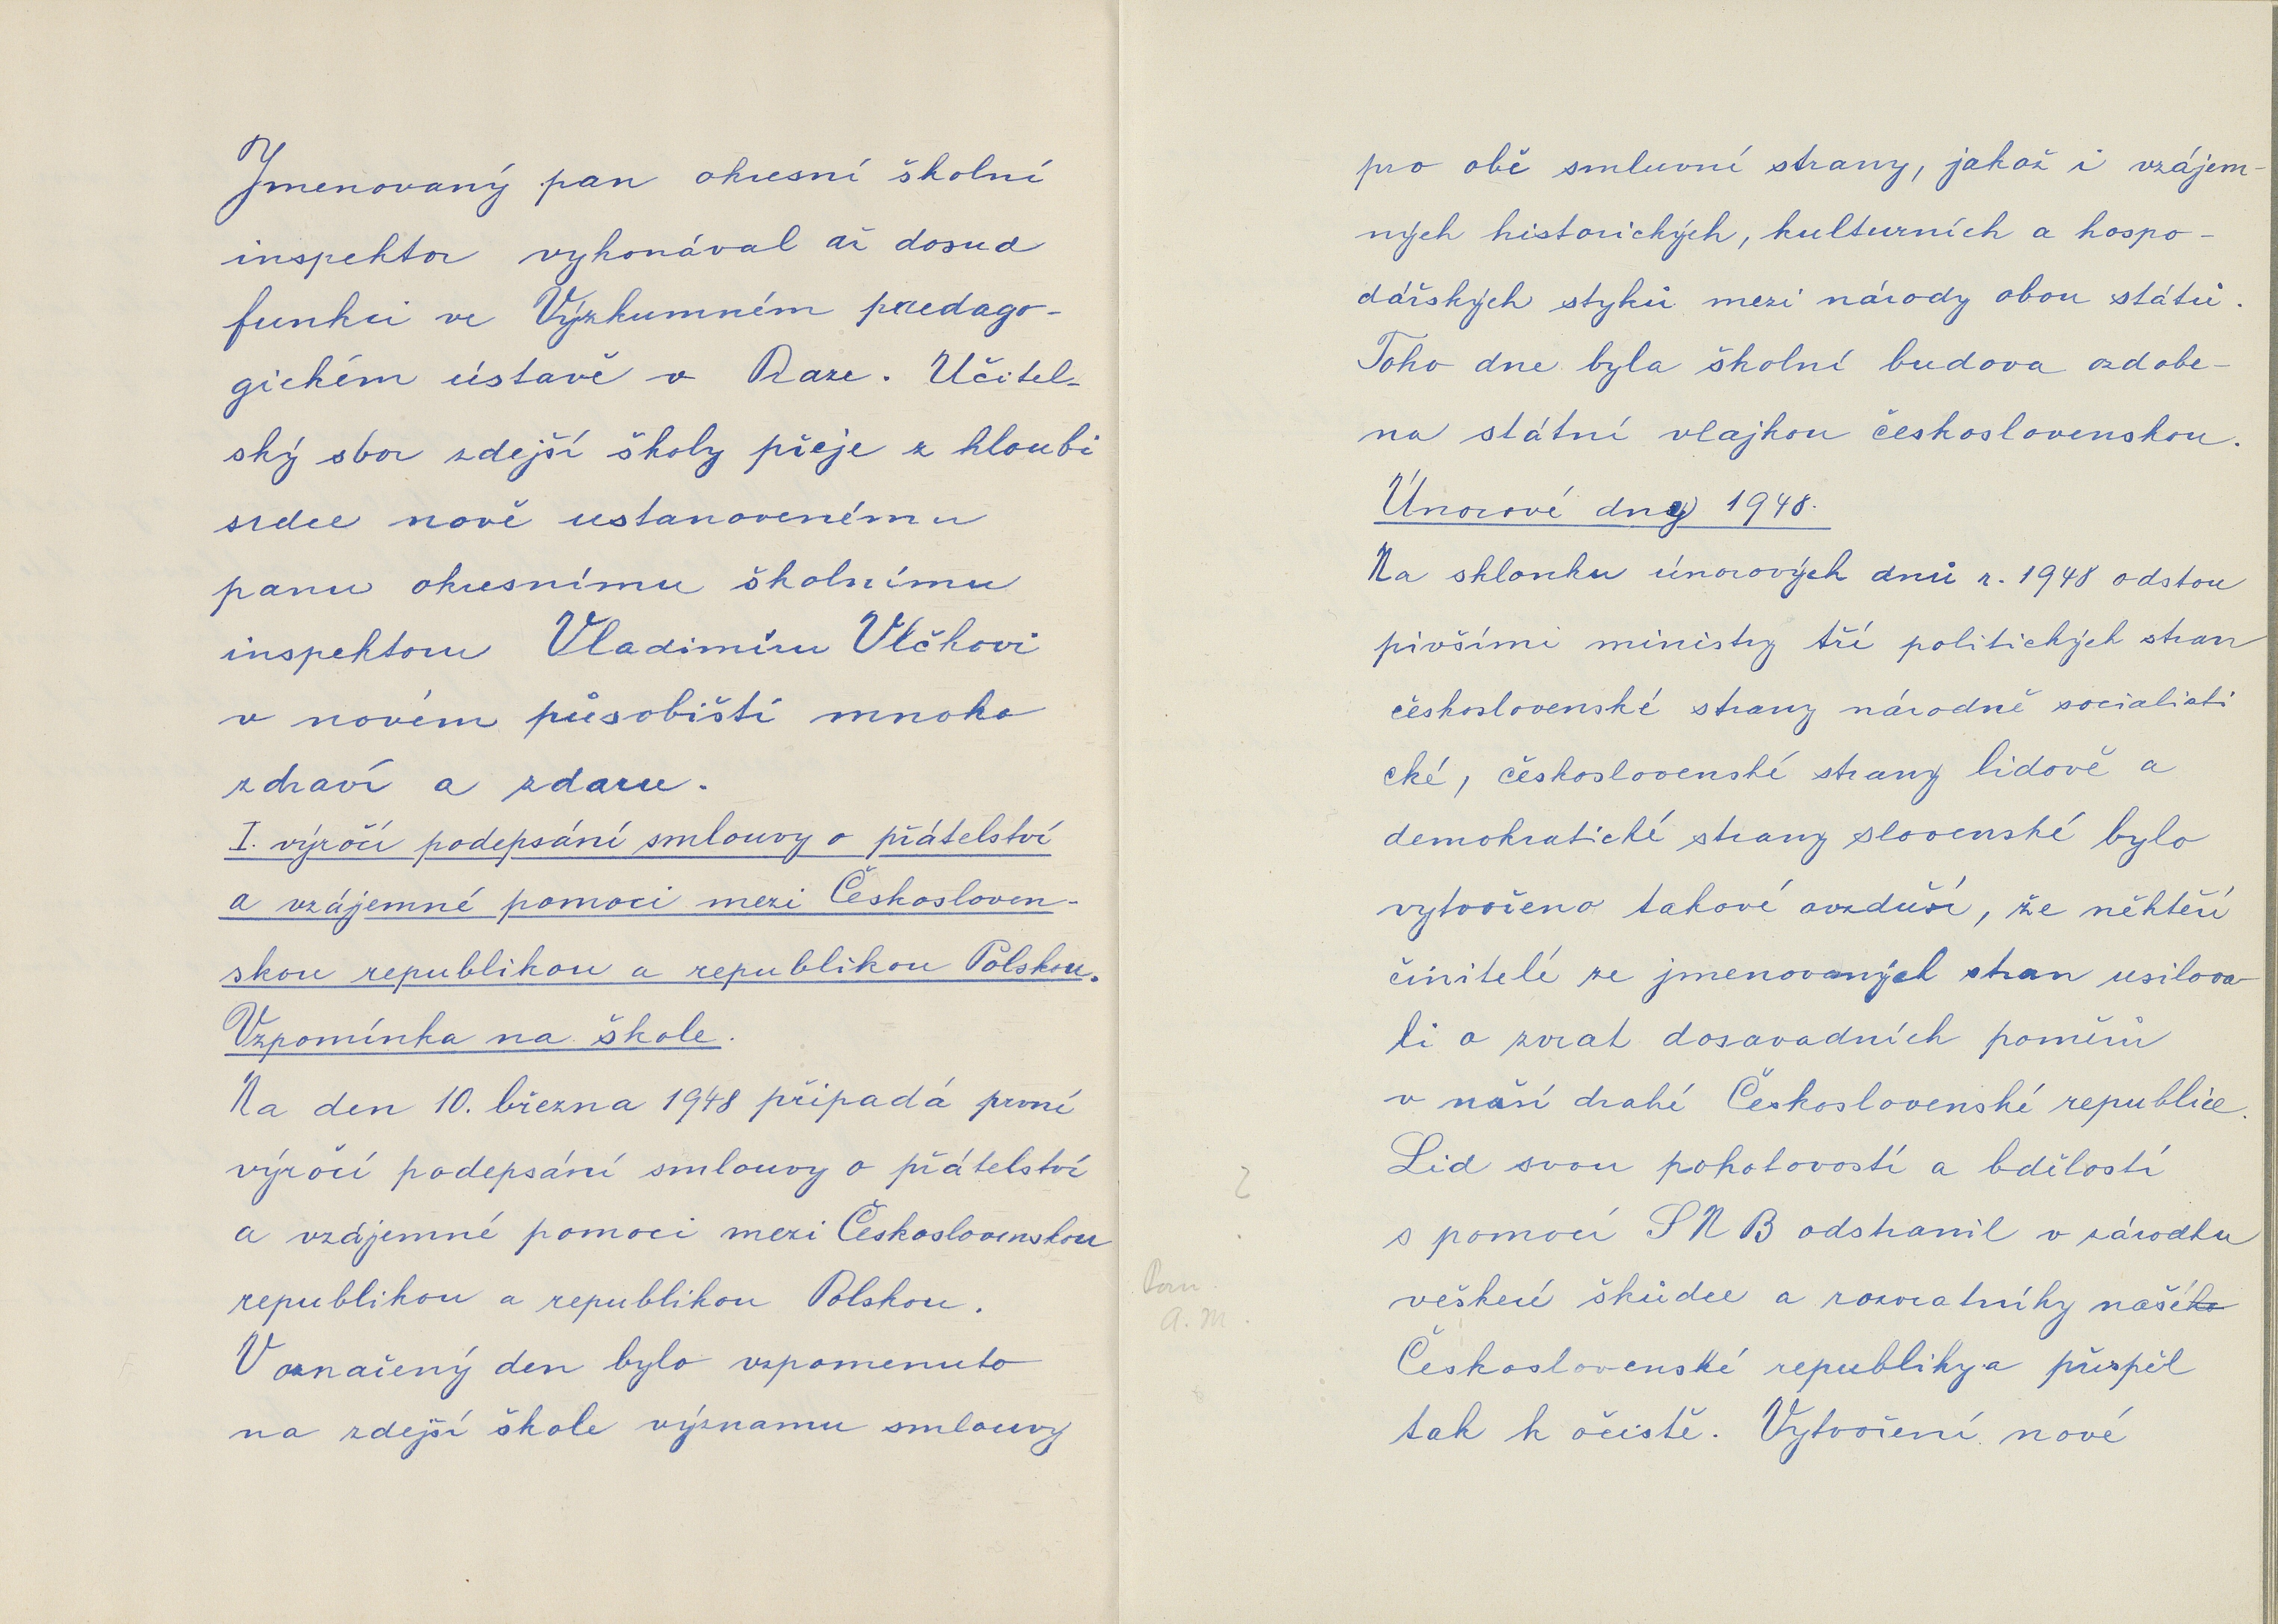 Jmenovaný pan okresní školní
inspektor vykonával až dosud
funkci ve Výzkumném paedago-
gickém ústavě v Praze. Učitel-
ský sbor zdejší školy přeje z hloubi
srdce nově ustanovenému
panu okresnímu školnímu
inspektoru Vladimíru Vlčkovi
v novém působišti mnoho
zdraví a zdaru.
I. výročí podepsání smlouvy o přátelství
a vzájemné pomoci mezi Českosloven-
skou republikou a republikou Polskou.
Vzpomínka na škole.
Na den 10. března 1948 připadá první
výročí podepsání smlouvy o přátelství
a vzájemné pomoci mezi Československou
republikou a republikou Polskou.
V označený den bylo vzpomenuto
na zdejší škole významu smlouvy
pro obě smluvní strany, jakož i vzájem-
ných historických, kulturních a hospo-
dářských styků mezi národy obou států.
Toho dne byla školní budova ozdobe-
na státní vlajkou československou.
Únorové dny 1948.
Na sklonku únorových dnů r. 1948 odstou
pivšími ministry tří politických stran
československé strany národně socialisti
cké, československé strany lidově a
demokratické strany slovenské bylo
vytvořeno takové ovzduší, že někteří
činitelé ze jmenovaných stran usilova
li o zvrat dosavadních poměrů
v naší drahé Československé republice.
Lid svou pohotovostí a bdělostí
s pomocí SNB odstranil v zárodku
veškeré škůdce a rozvratníky našeho
Československé republiky a přispěl
tak k očistě. Vytvoření nové